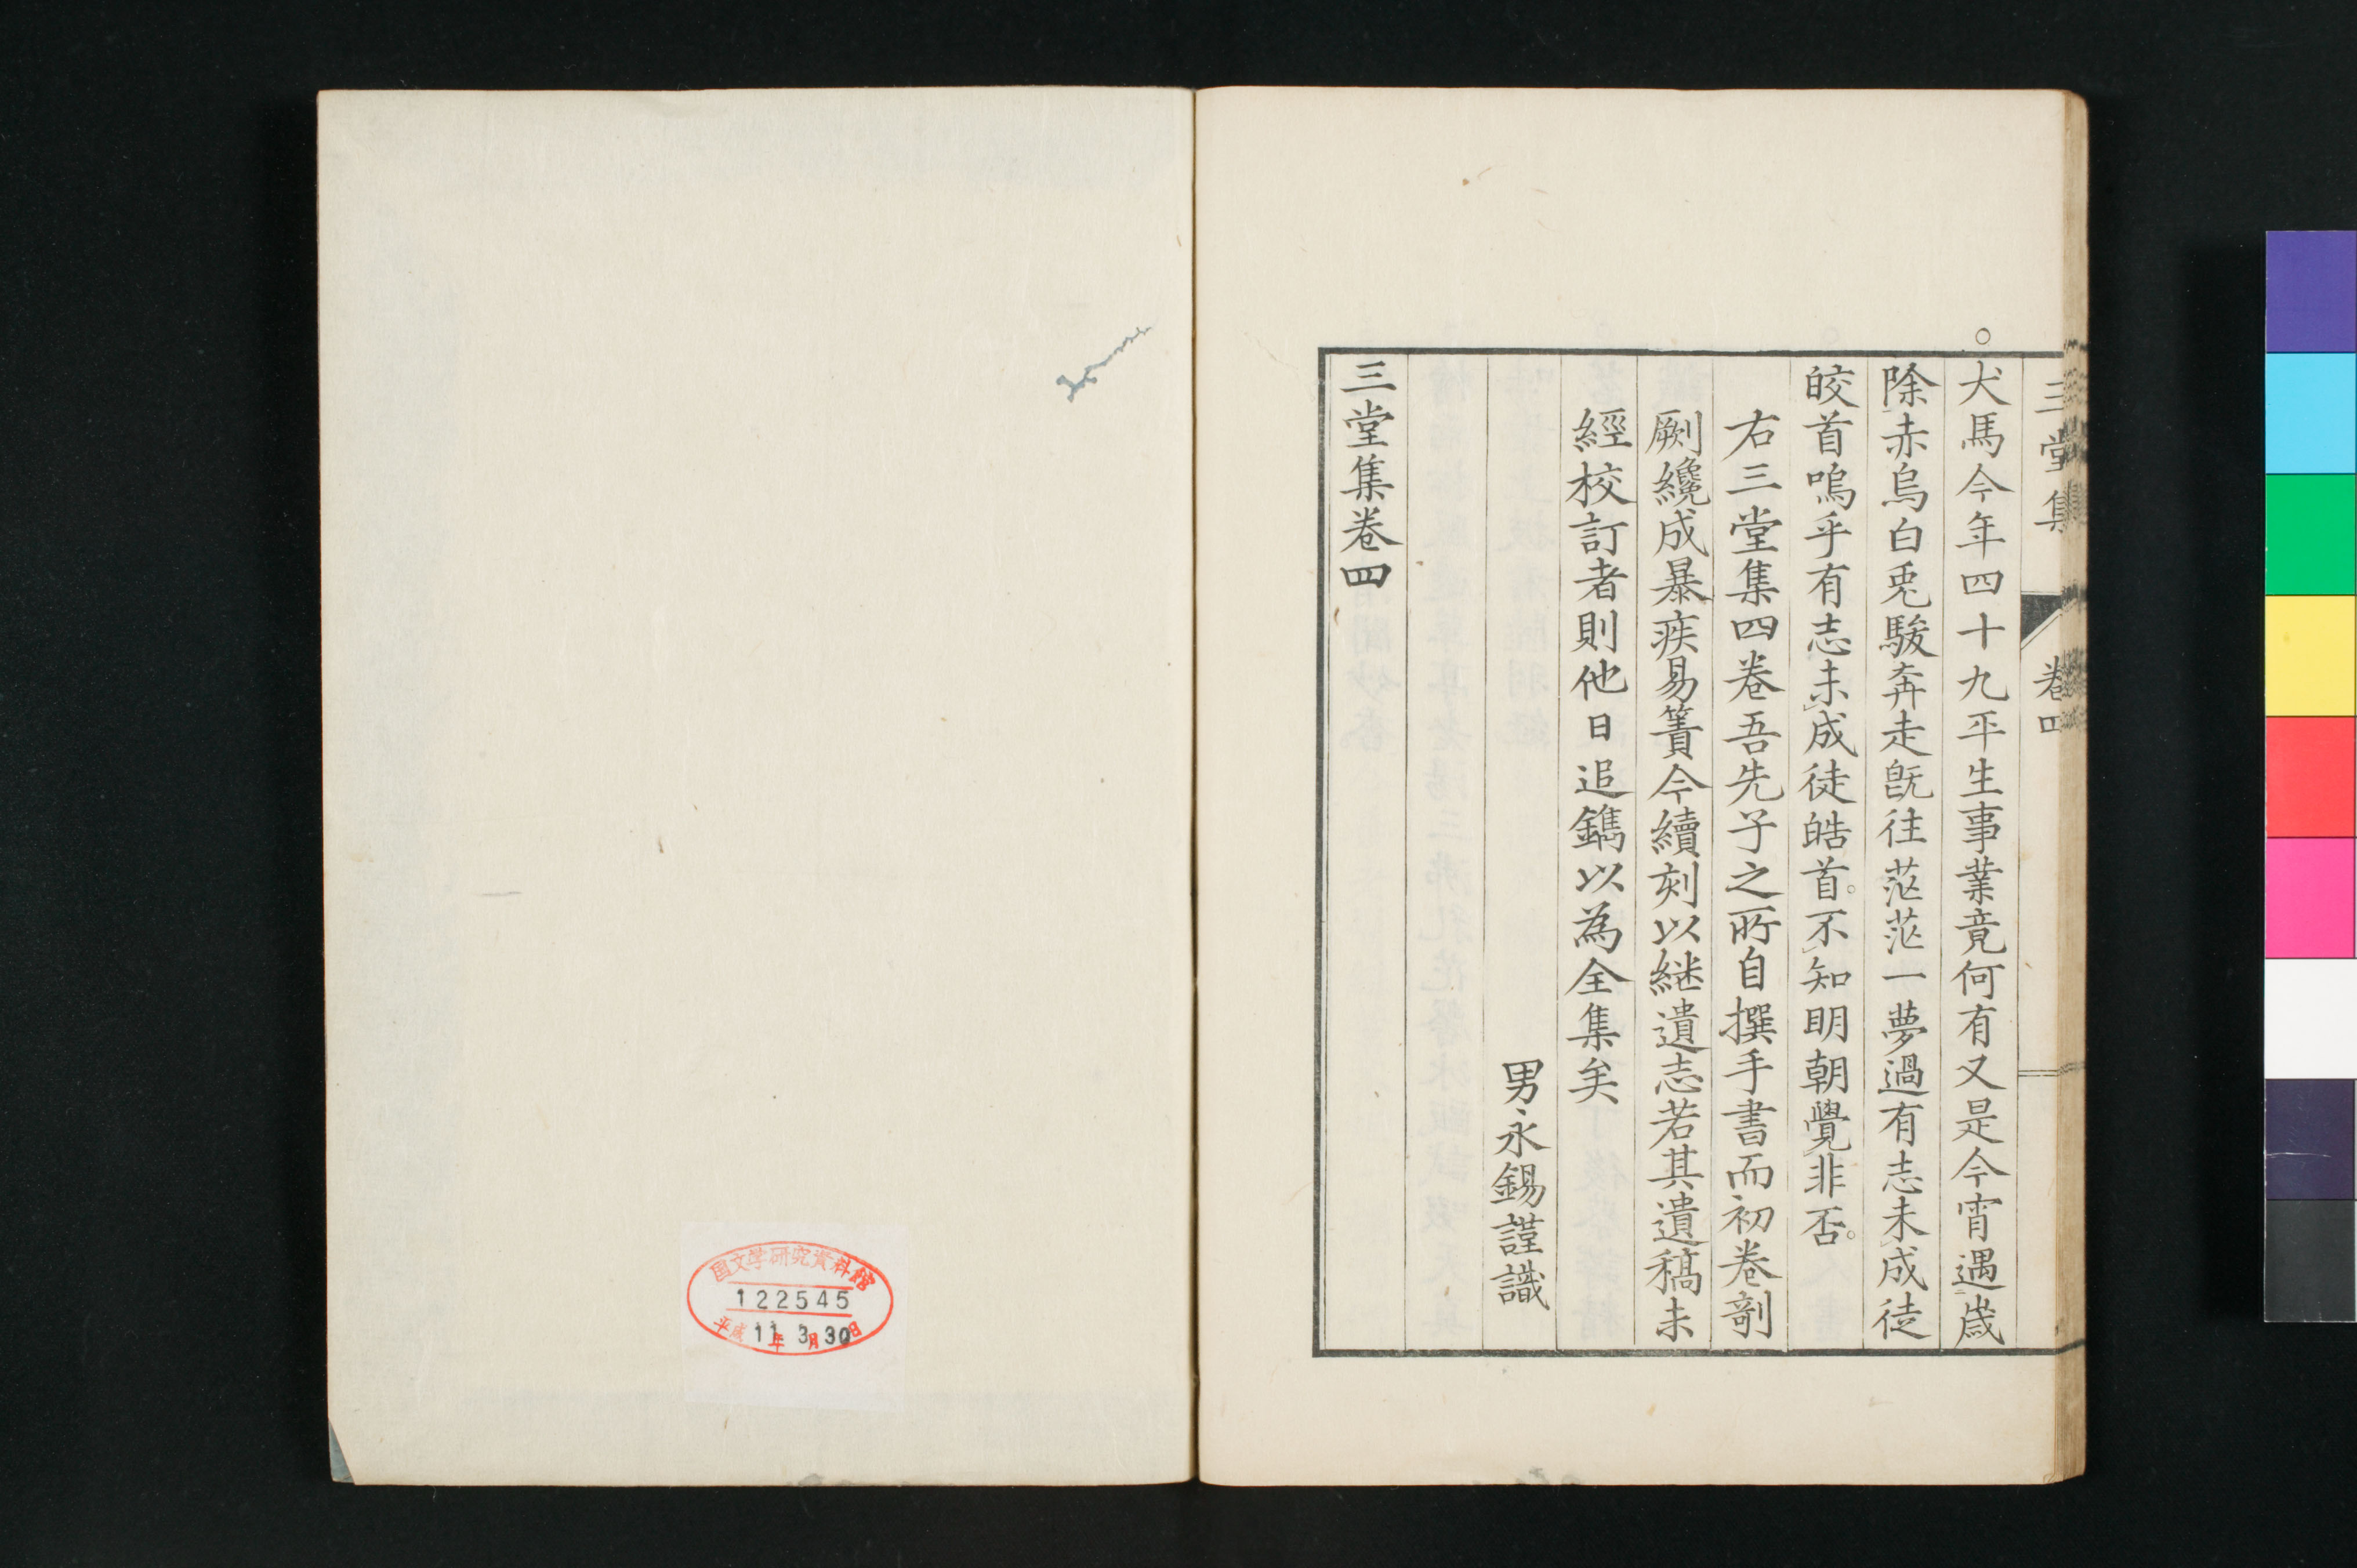 三堂集 卷四
○犬馬今年四十九平生事業竟何有又是今宵遇歲
除赤烏白兎駿奔走旣往茫茫一夢過有志未成徒
皎首嗚乎有志未成徒皓首。不知明朝覺非否。
右三堂集四卷吾先子之所自撰手書而初卷剞
劂纔成暴疾易簀今續刻以継遺志若其遺稿未
經校訂者則他日追鐫以為全集矣
男永錫謹識
三堂集卷四
国文学研究資料館
122545
平成11年3月30日